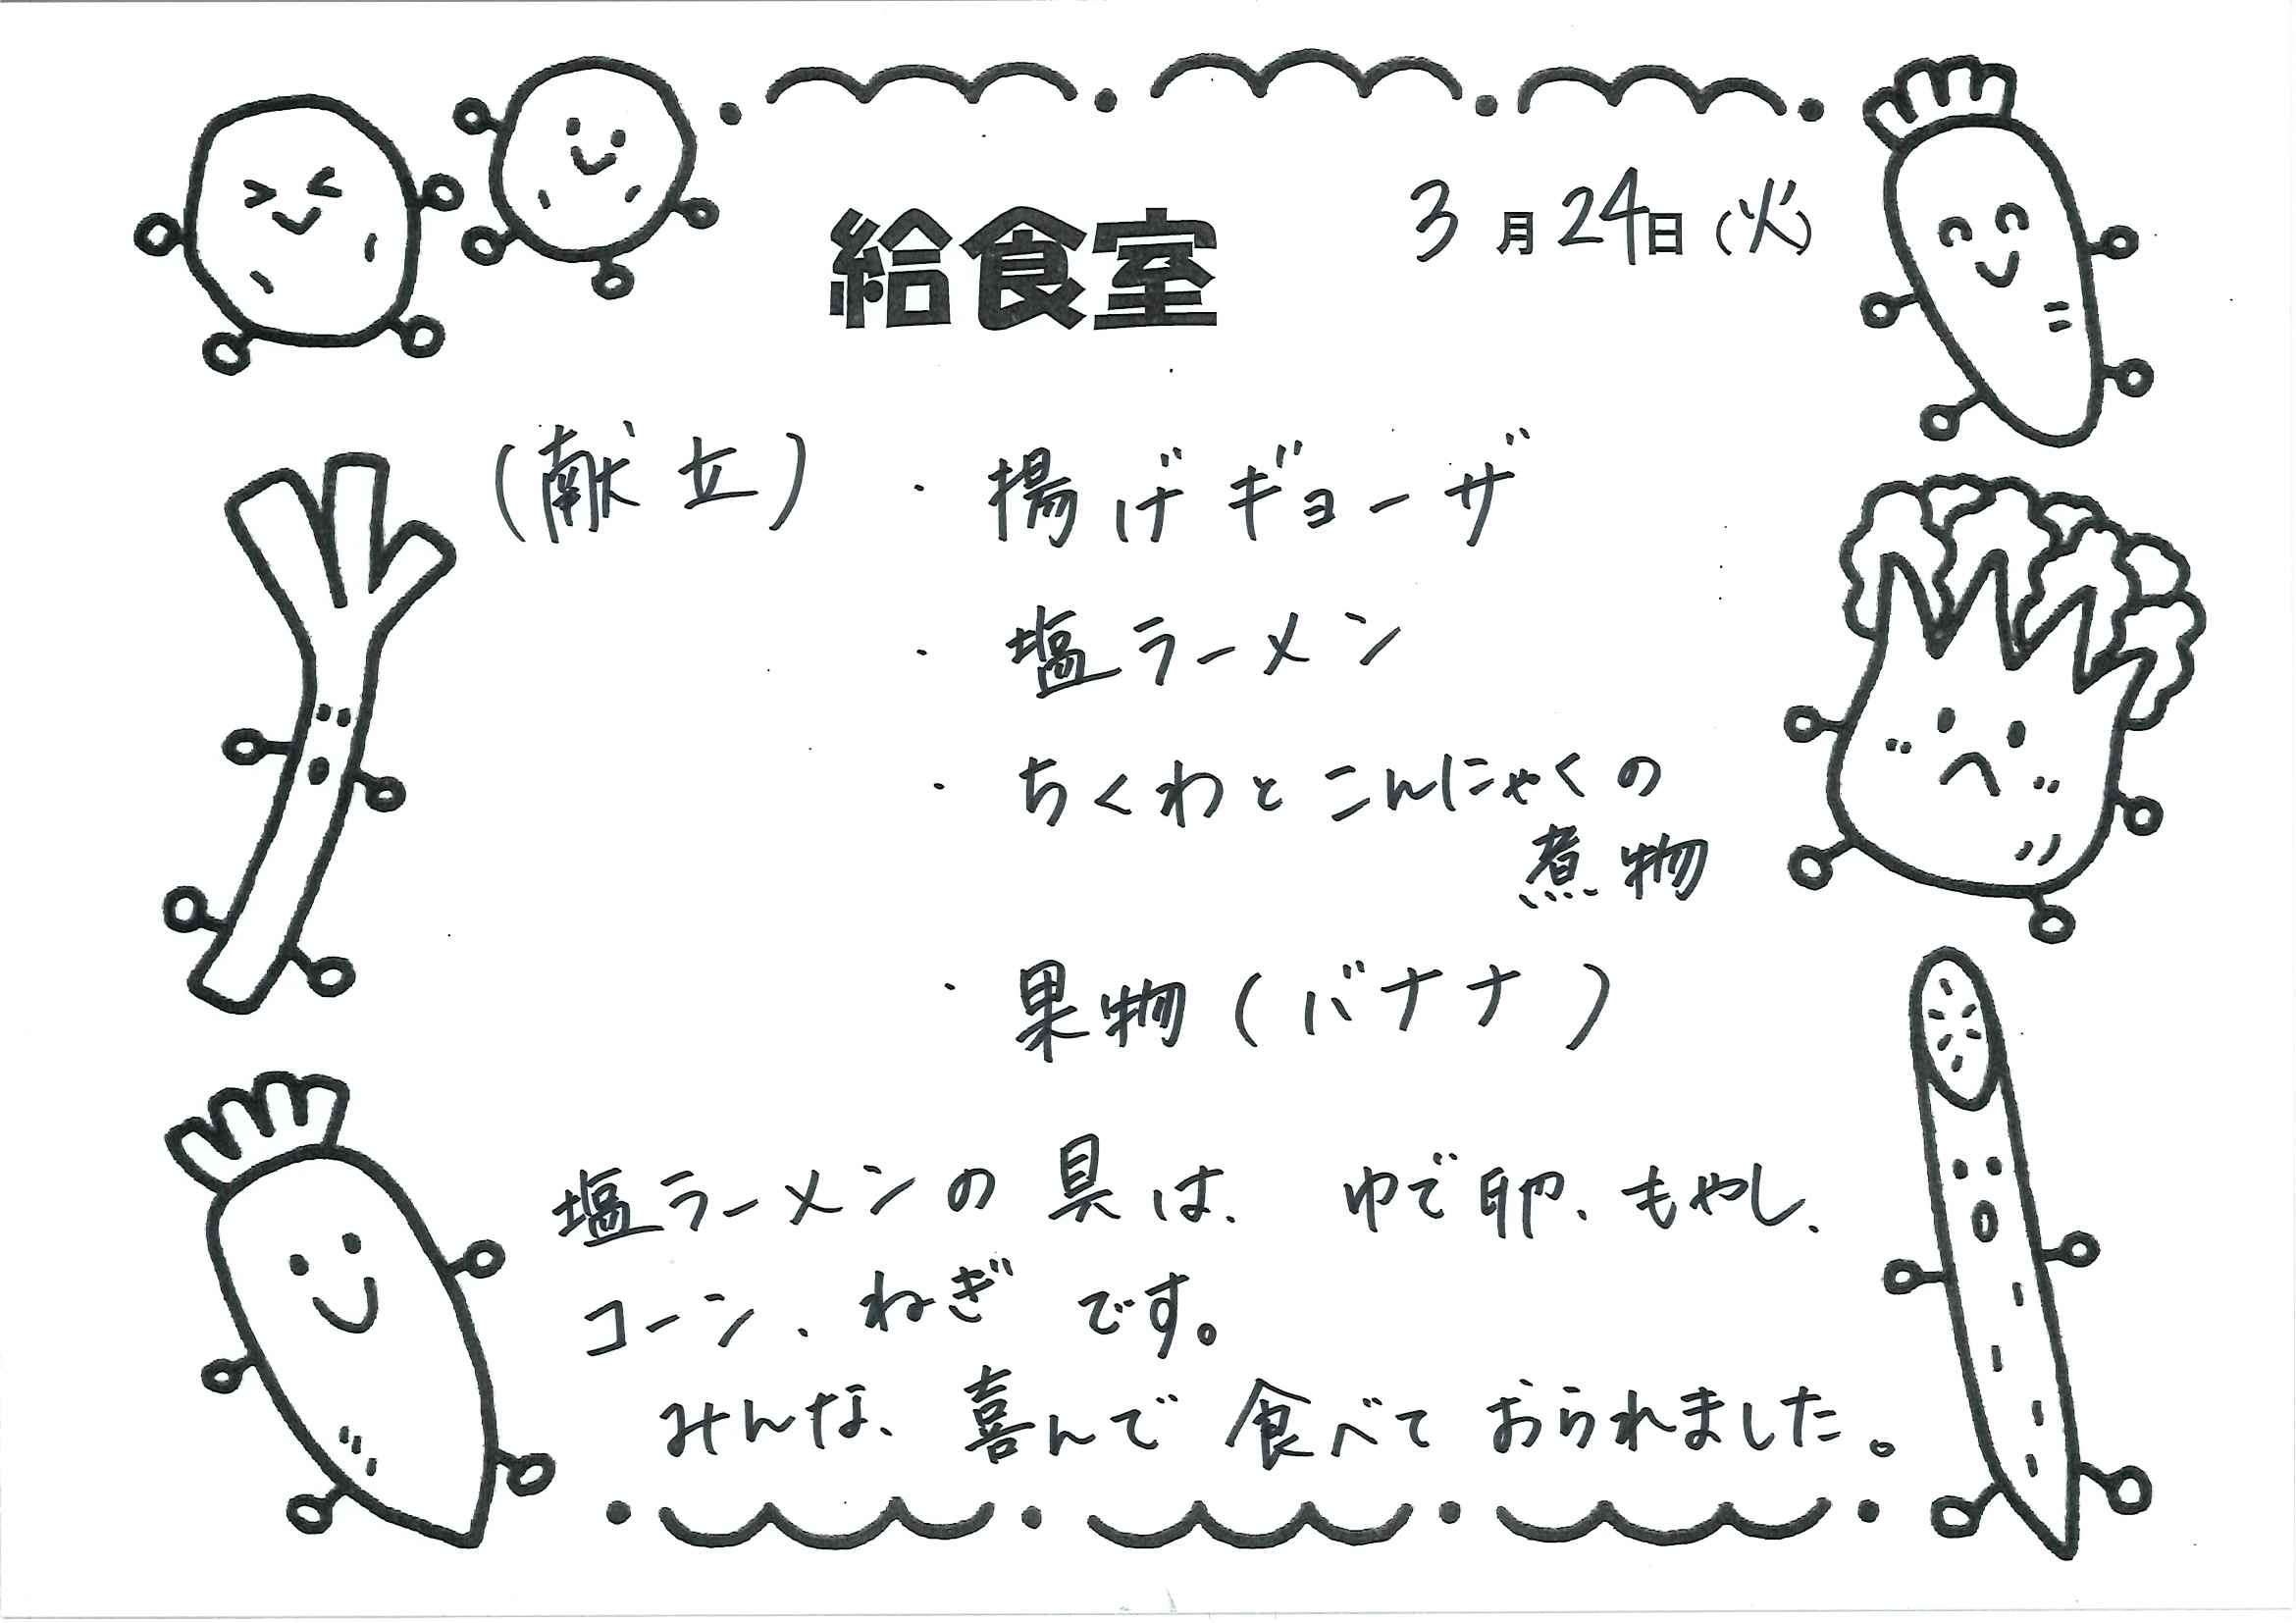 給食室
3月24日(火)
(献立)・揚げギョーザ
・塩ラーメン
・ちくわとこんにゃくの
煮物
・果物(バナナ)
塩ラーメンの具は、ゆで卵、もやし、
コーン、ねぎです。
みんな、喜んで食べておられました。